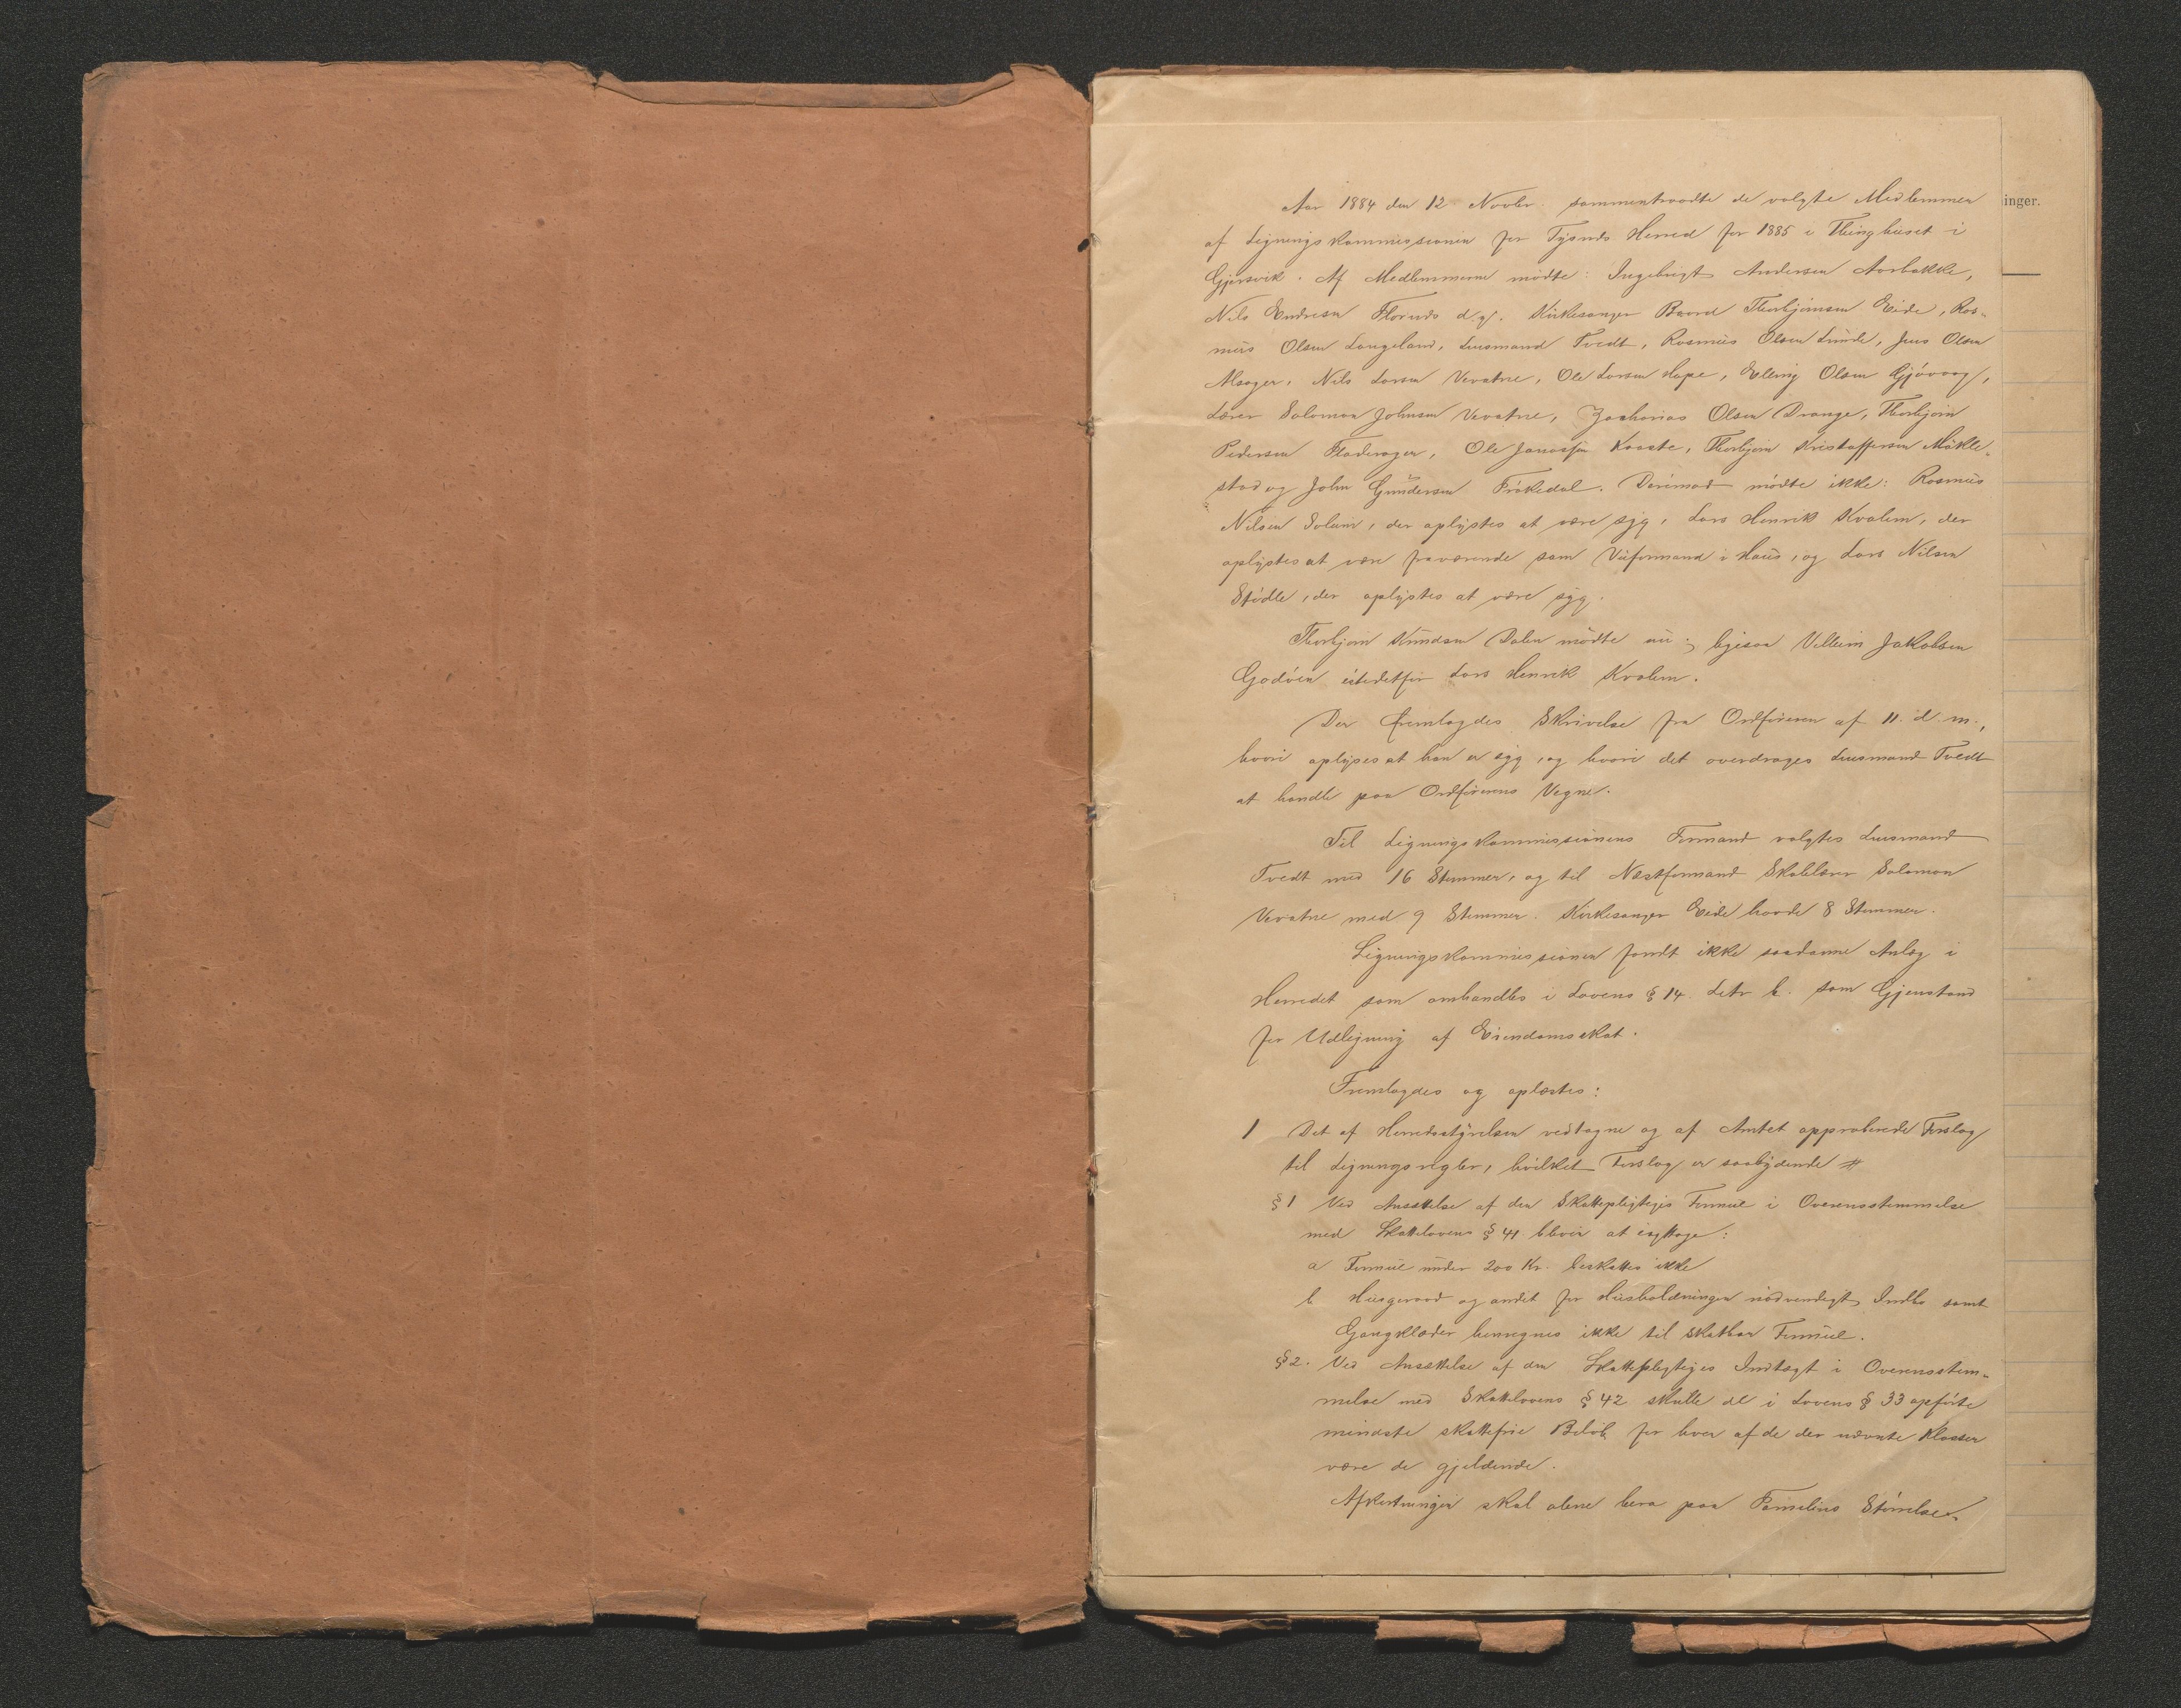 Aar 1884 den 12 Novbr. sammentraadte de valgte Medlemmer
af Ligningskommissionen for Tysnes Herred for 1885 i Thinghuset i
Gjersvik. Af Medlemmerne mødte: Ingebrigt Andersen Aarbakke,
Nils Endresen Flornes d.y. Kirkesanger Baard Thorbjørnsen Eide, Ras-
mus Olsen Langeland, Lensmand Tvedt, Rasmus Olsen Lunde, Jens Olsen
Alsager, Nils Larsen Vevatne, Ole Larsen Hope, Elling Olsen Gjøvaag,
Lærer Salomon Johnsen Vevatne, Zacharias Olsen Drange, Thorbjørn
Pedersen Fladeragen, Ole Janassen Kaaste, Thorbjørn Kristoffersen Møkle-
stad og John Gundersen Frøkedal. Derimod mødte ikke: Rasmus
Nilsen Soleim, der oplystes at være syg, Lars Henrik Kvalem, der
oplystes at være fraværende som i Haus, og Lars Nilsen
Stødle, der oplystes at være syg.
Thorbjørn Knudsen Dalen mødte nu; ligesaa Villum Jakobsen
Godøen istedetfor Lars Henrik Kvalem.
Der fremlagdes Skrivelse fra Ordføreren af 11. d. m.,
hvori oplyses at han er syg, og hvori det overdrages Lensmand Tvedt
at handle paa Ordførerens Vegne.
Til Ligningskommissionens Formand valgtes Lensmand
Tvedt med 16 Stemmer, og til Næstformand Skolelærer Salomon
Vevatne med 9 Stemmer. Kirkesanger Eide havde 8 Stemmer.
Ligningskommissionen fandt ikke saadanne Anlæg i
Herredet som omhandles i Lovens § 14. Litr b. som Gjenstand
for Udligning af Eiendomsskat.
Fremlagdes og oplæstes:
1 Det af Herredsstyrelsen vedtagne og af Amtet approberede Forslag
til Ligningsregler, hvilket Forslag er saalydende #
§ 1 Ved Ansættelse af den Skattepligtiges Formue i Overensstemmelse
med Skattelovens § 41 bliver at iagttage:
a Formue under 200 Kr. beskattes ikke
b Husgeraad og andet for Husholdningen nødvendigt Indbo samt
Gangklæder henregnes ikke til skatbar Formue.
§ 2. Ved Ansættelse af den Skattepligtiges Indtægt i Overensstem-
melse med Skattelovens § 42 skulle de i Lovens § 33 opførte
mindste skattefrie Beløb for hver af de der nævnte Klasser
være de gjeldende.
Afkortningen skal alene bero paa Familiens Størrelse
inger.